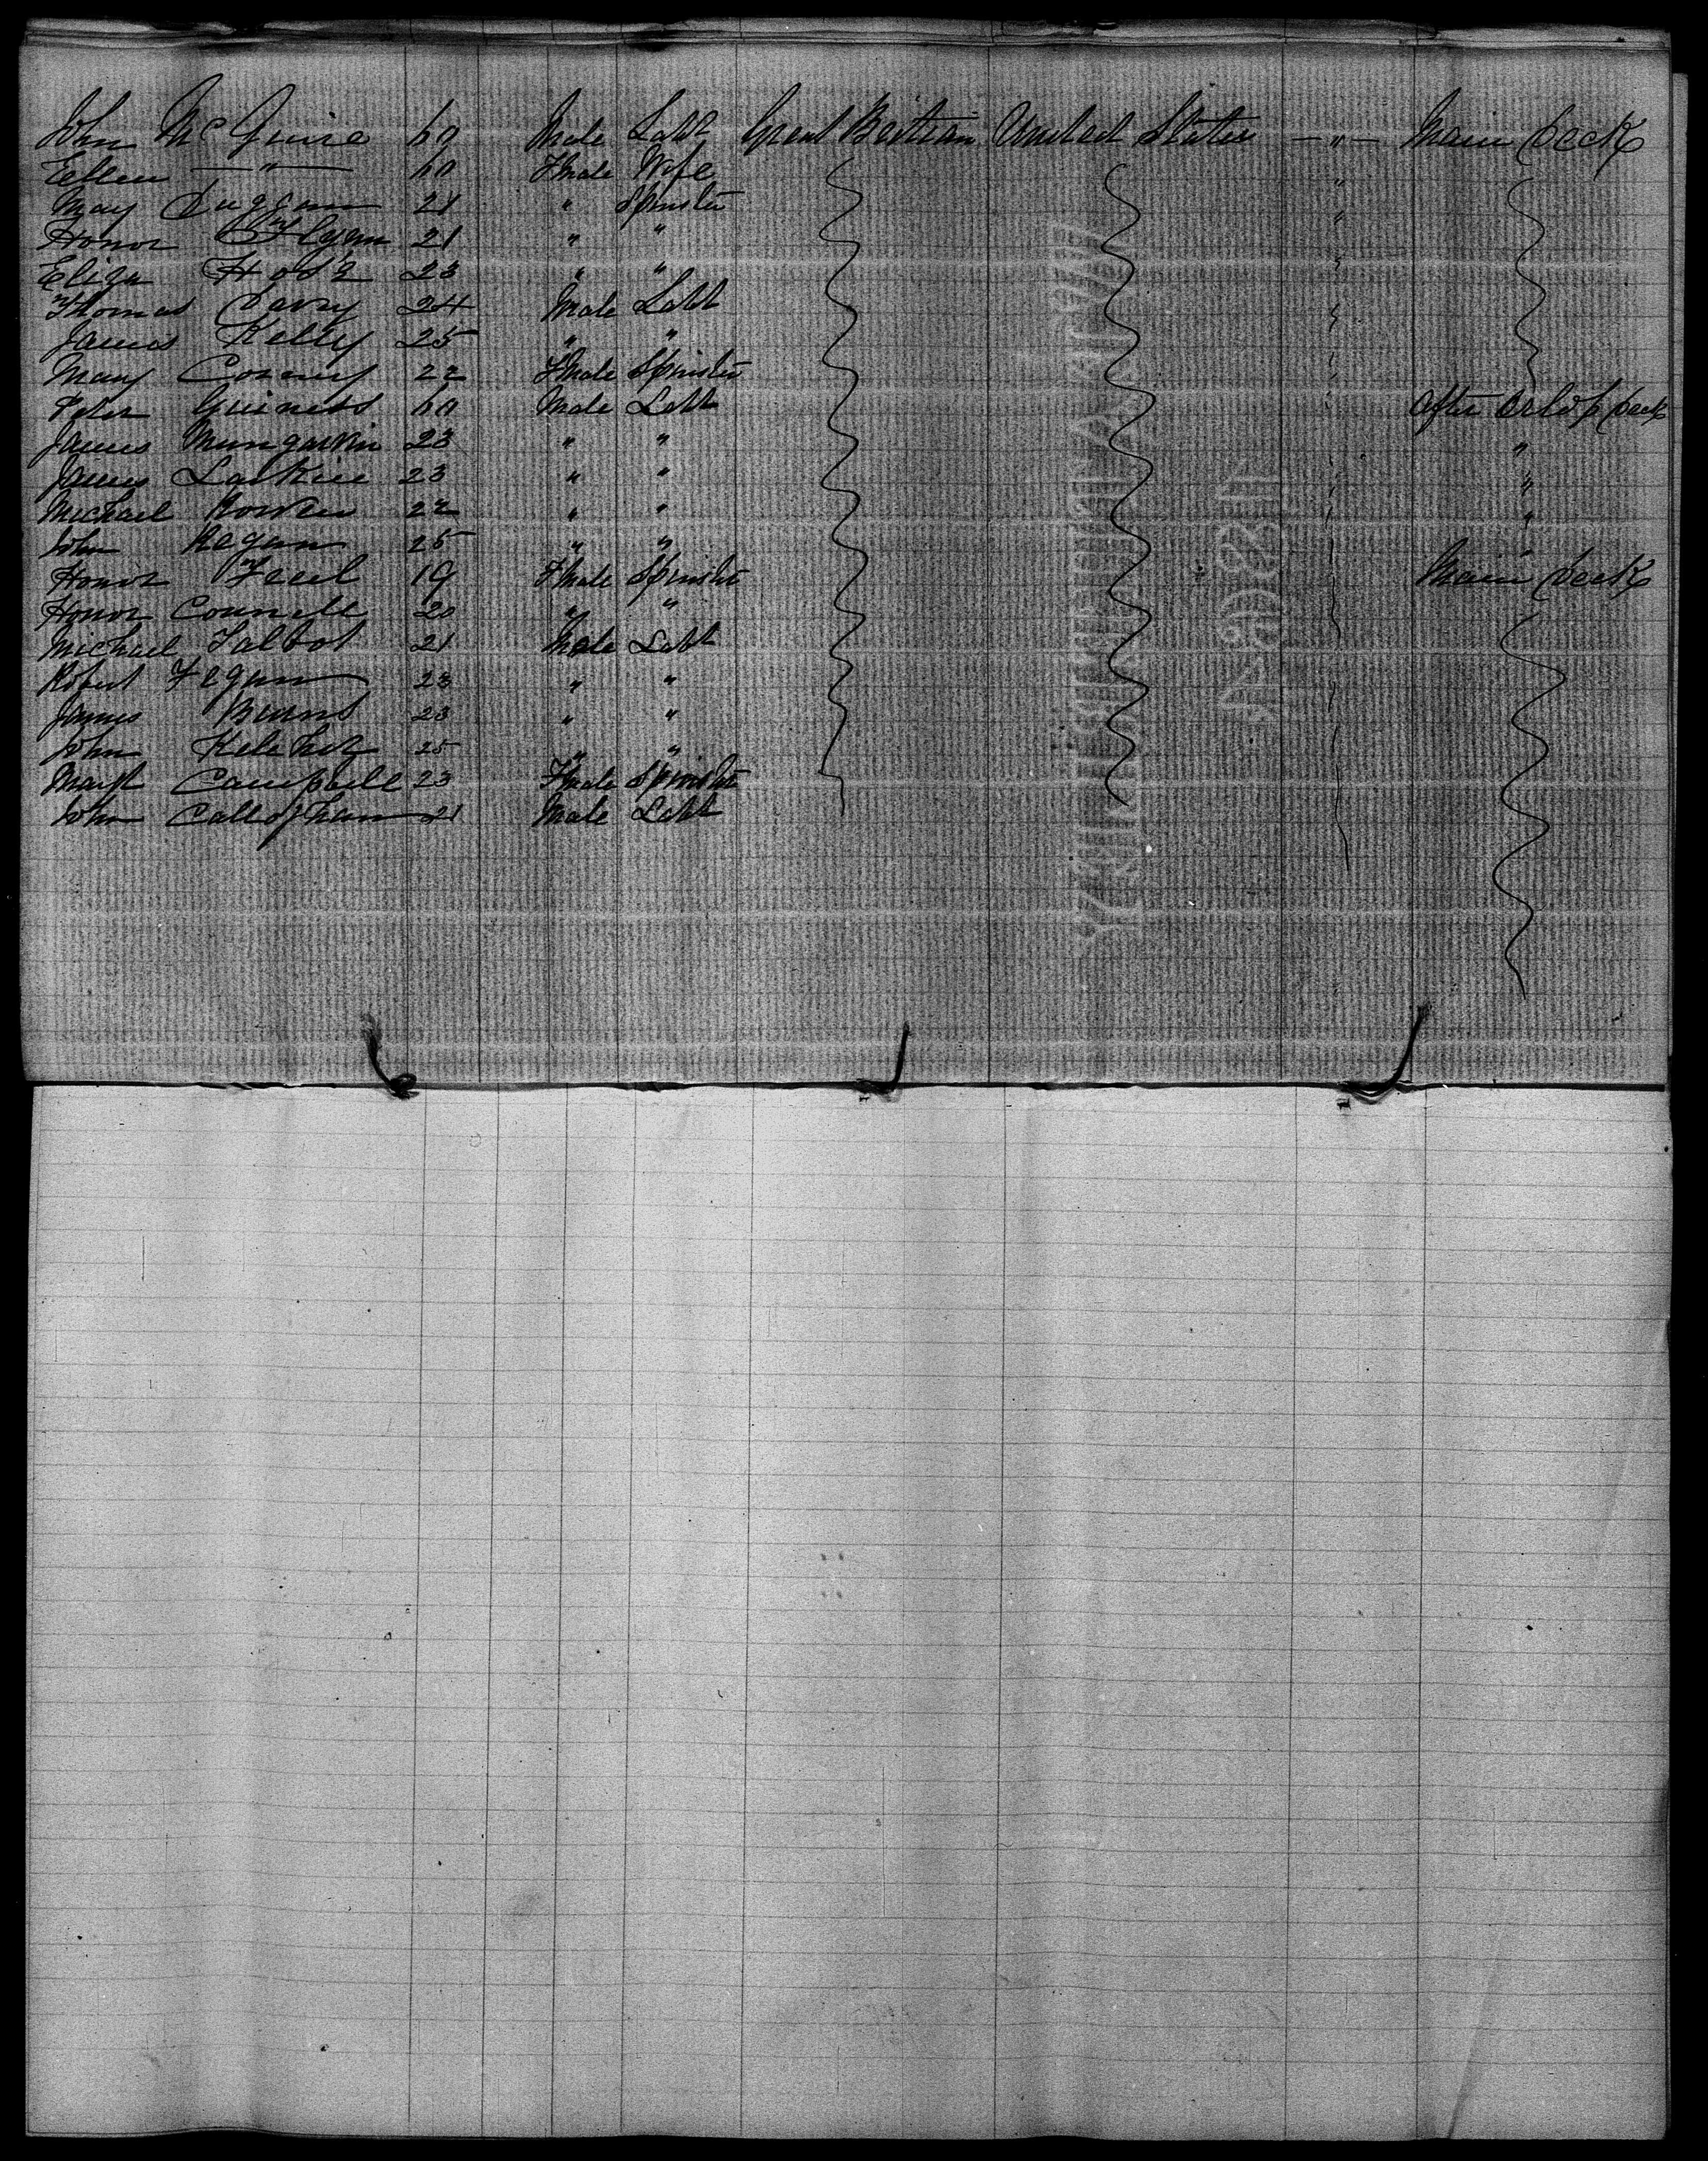 John McGuire 60 Male Labr Great Britian United States — " — Main Deck
Ellen — " — 60 Fmale Wife "
May Duggan 21 " Spinster "
Honor Flynn 21 " "
Eliza 23 " "
Thomas Davey 24 Male Labr
James Kelly 25 " "
Mary Conney 22 Fmale Spinster
Peter Guiness 60 Male Labr After Orlop Deck
James 23 " " "
James Larkin 23 " " "
Michael 22 " " "
John Regan 25 " " "
Honor 19 Fmale Spinster Main Deck
Honor Connell 20 " "
Michael Talbot 21 Male Labr
Robert Fegan 23 " "
James Burns 23 " "
John Keleher 25 " "
Margt Campbell 23 Fmale Spinster
John Callaghan 21 Male Labr